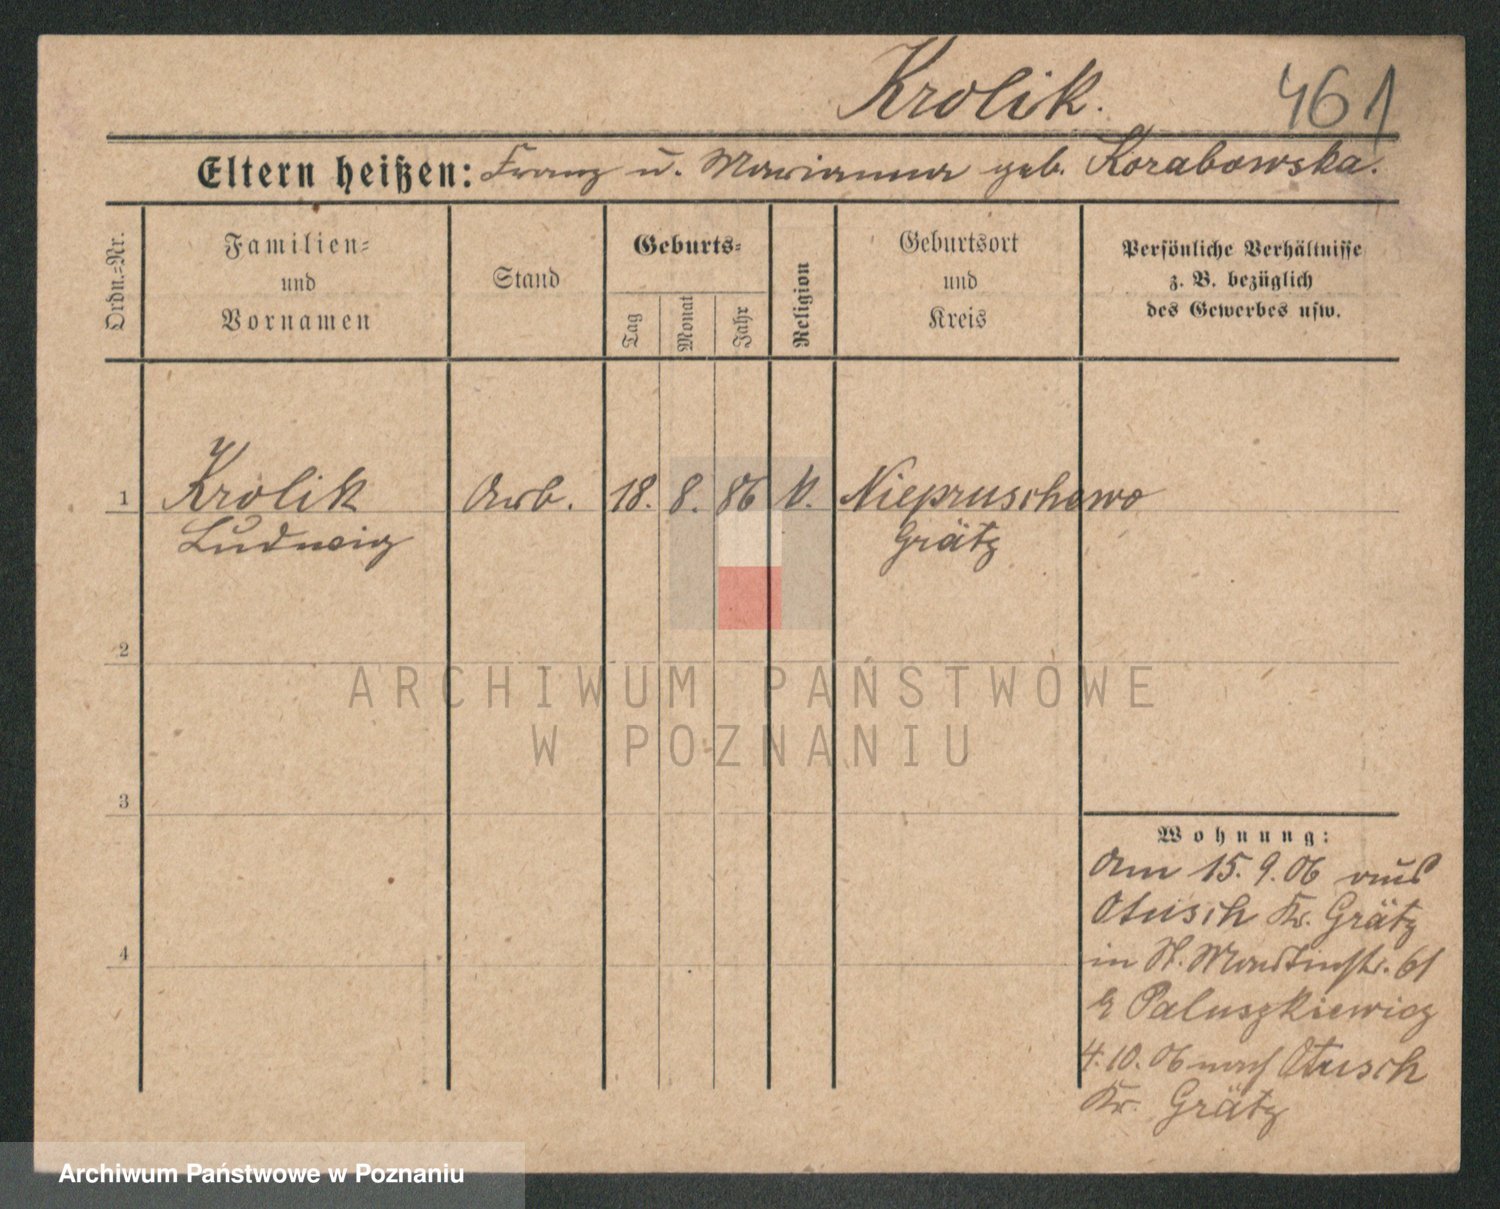 Krolik. 461
Eltern heißen: Franz u. Marianna geb. Korabowska.
Ordn.-Nr.
Familien-
und
Vornamen
Stand
Geburts-
Tag
Monat
Jahr
Religion
Geburtsort
und
Kreis
Persönliche Verhältnisse
z. B. bezüglich
des Gewerbes usw.
1 Krolik Arb. 18. 8. 86 Niepruschewo
Ludwig Grätz
2
ARCHIWUM PAŃSTWOWE
W POZNANIU
3
Wohnung:
am 15.9.06 aus
Otusch Kr. Grätz
4
in St. Martinstr. 61
Paluszkiewicz
4.10.06 nach Otusch
Kr. Grätz
Archiwum Państwowe w Poznaniu